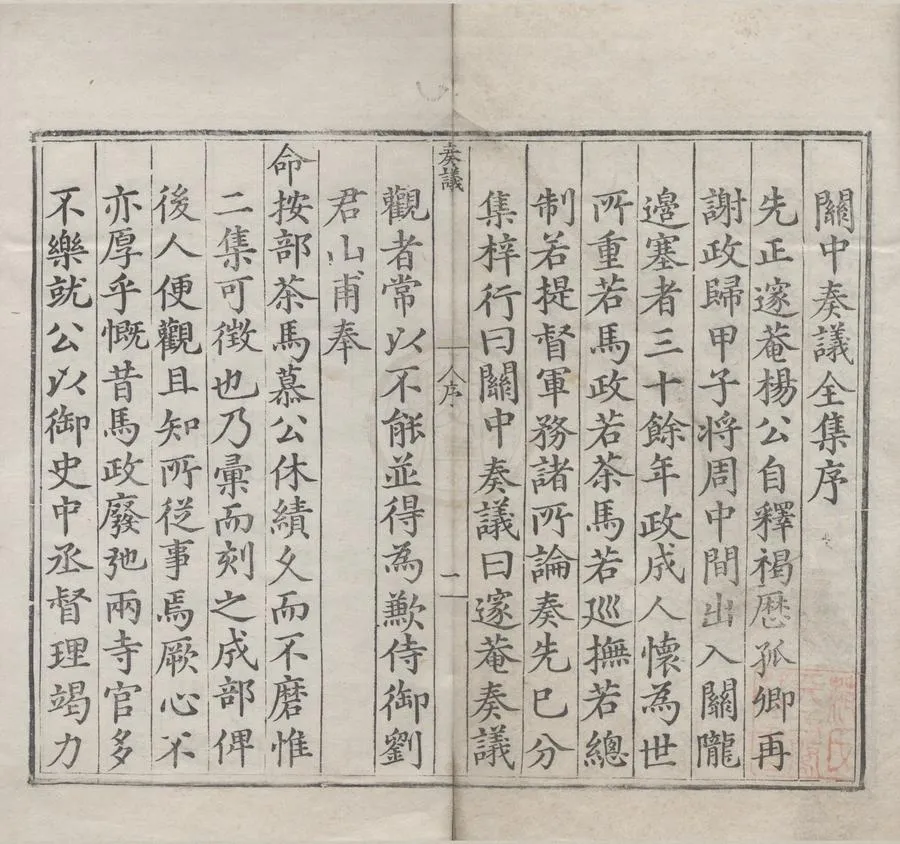 關中奏議全集序
先正邃菴楊公自釋褐歷孤卿再
謝政歸甲子将周中間出入關隴
邊塞者三十餘年政成人懷為世
所重若馬政若茶馬若巡撫若總
制若提督軍務諸所論奏先已分
集梓行曰關中奏議曰邃菴奏議
奏議
人序
二
觀者常以不能並得為歉侍御劉
君山甫奉
命按部茶馬慕公休績久而不磨惟
二集可徵也乃彙而刻之成部俾
後人便觀且知所從事焉厥心不
亦厚乎慨昔馬政廢弛兩寺官多
不樂就公以御史中丞督理竭力